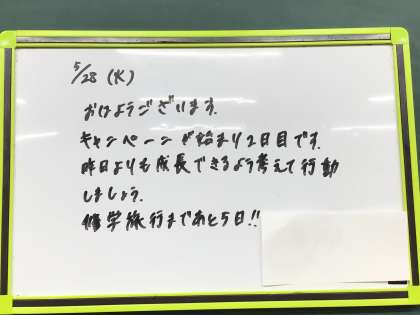 5/28 (水)
おはようございます.
キャンペーンが始まり2日目です.
昨日よりも成長できるよう考えて行動
しましょう.
修学旅行まであと5日!!